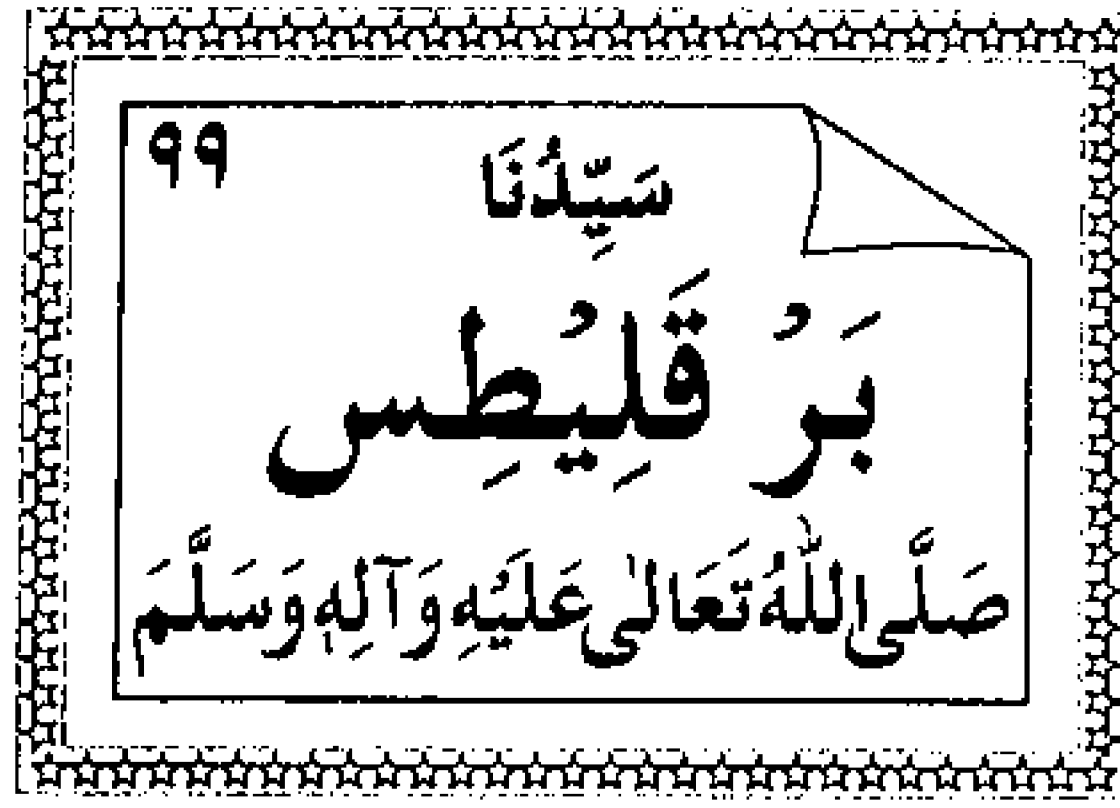 ۹۹
سَيِّدُنَا
بَرْ قَلِيْطِس
صَلَّى اللّٰهُ تَعَالىٰ عَلَيْهِ وَآلِهٖ وَسَلَّمَ